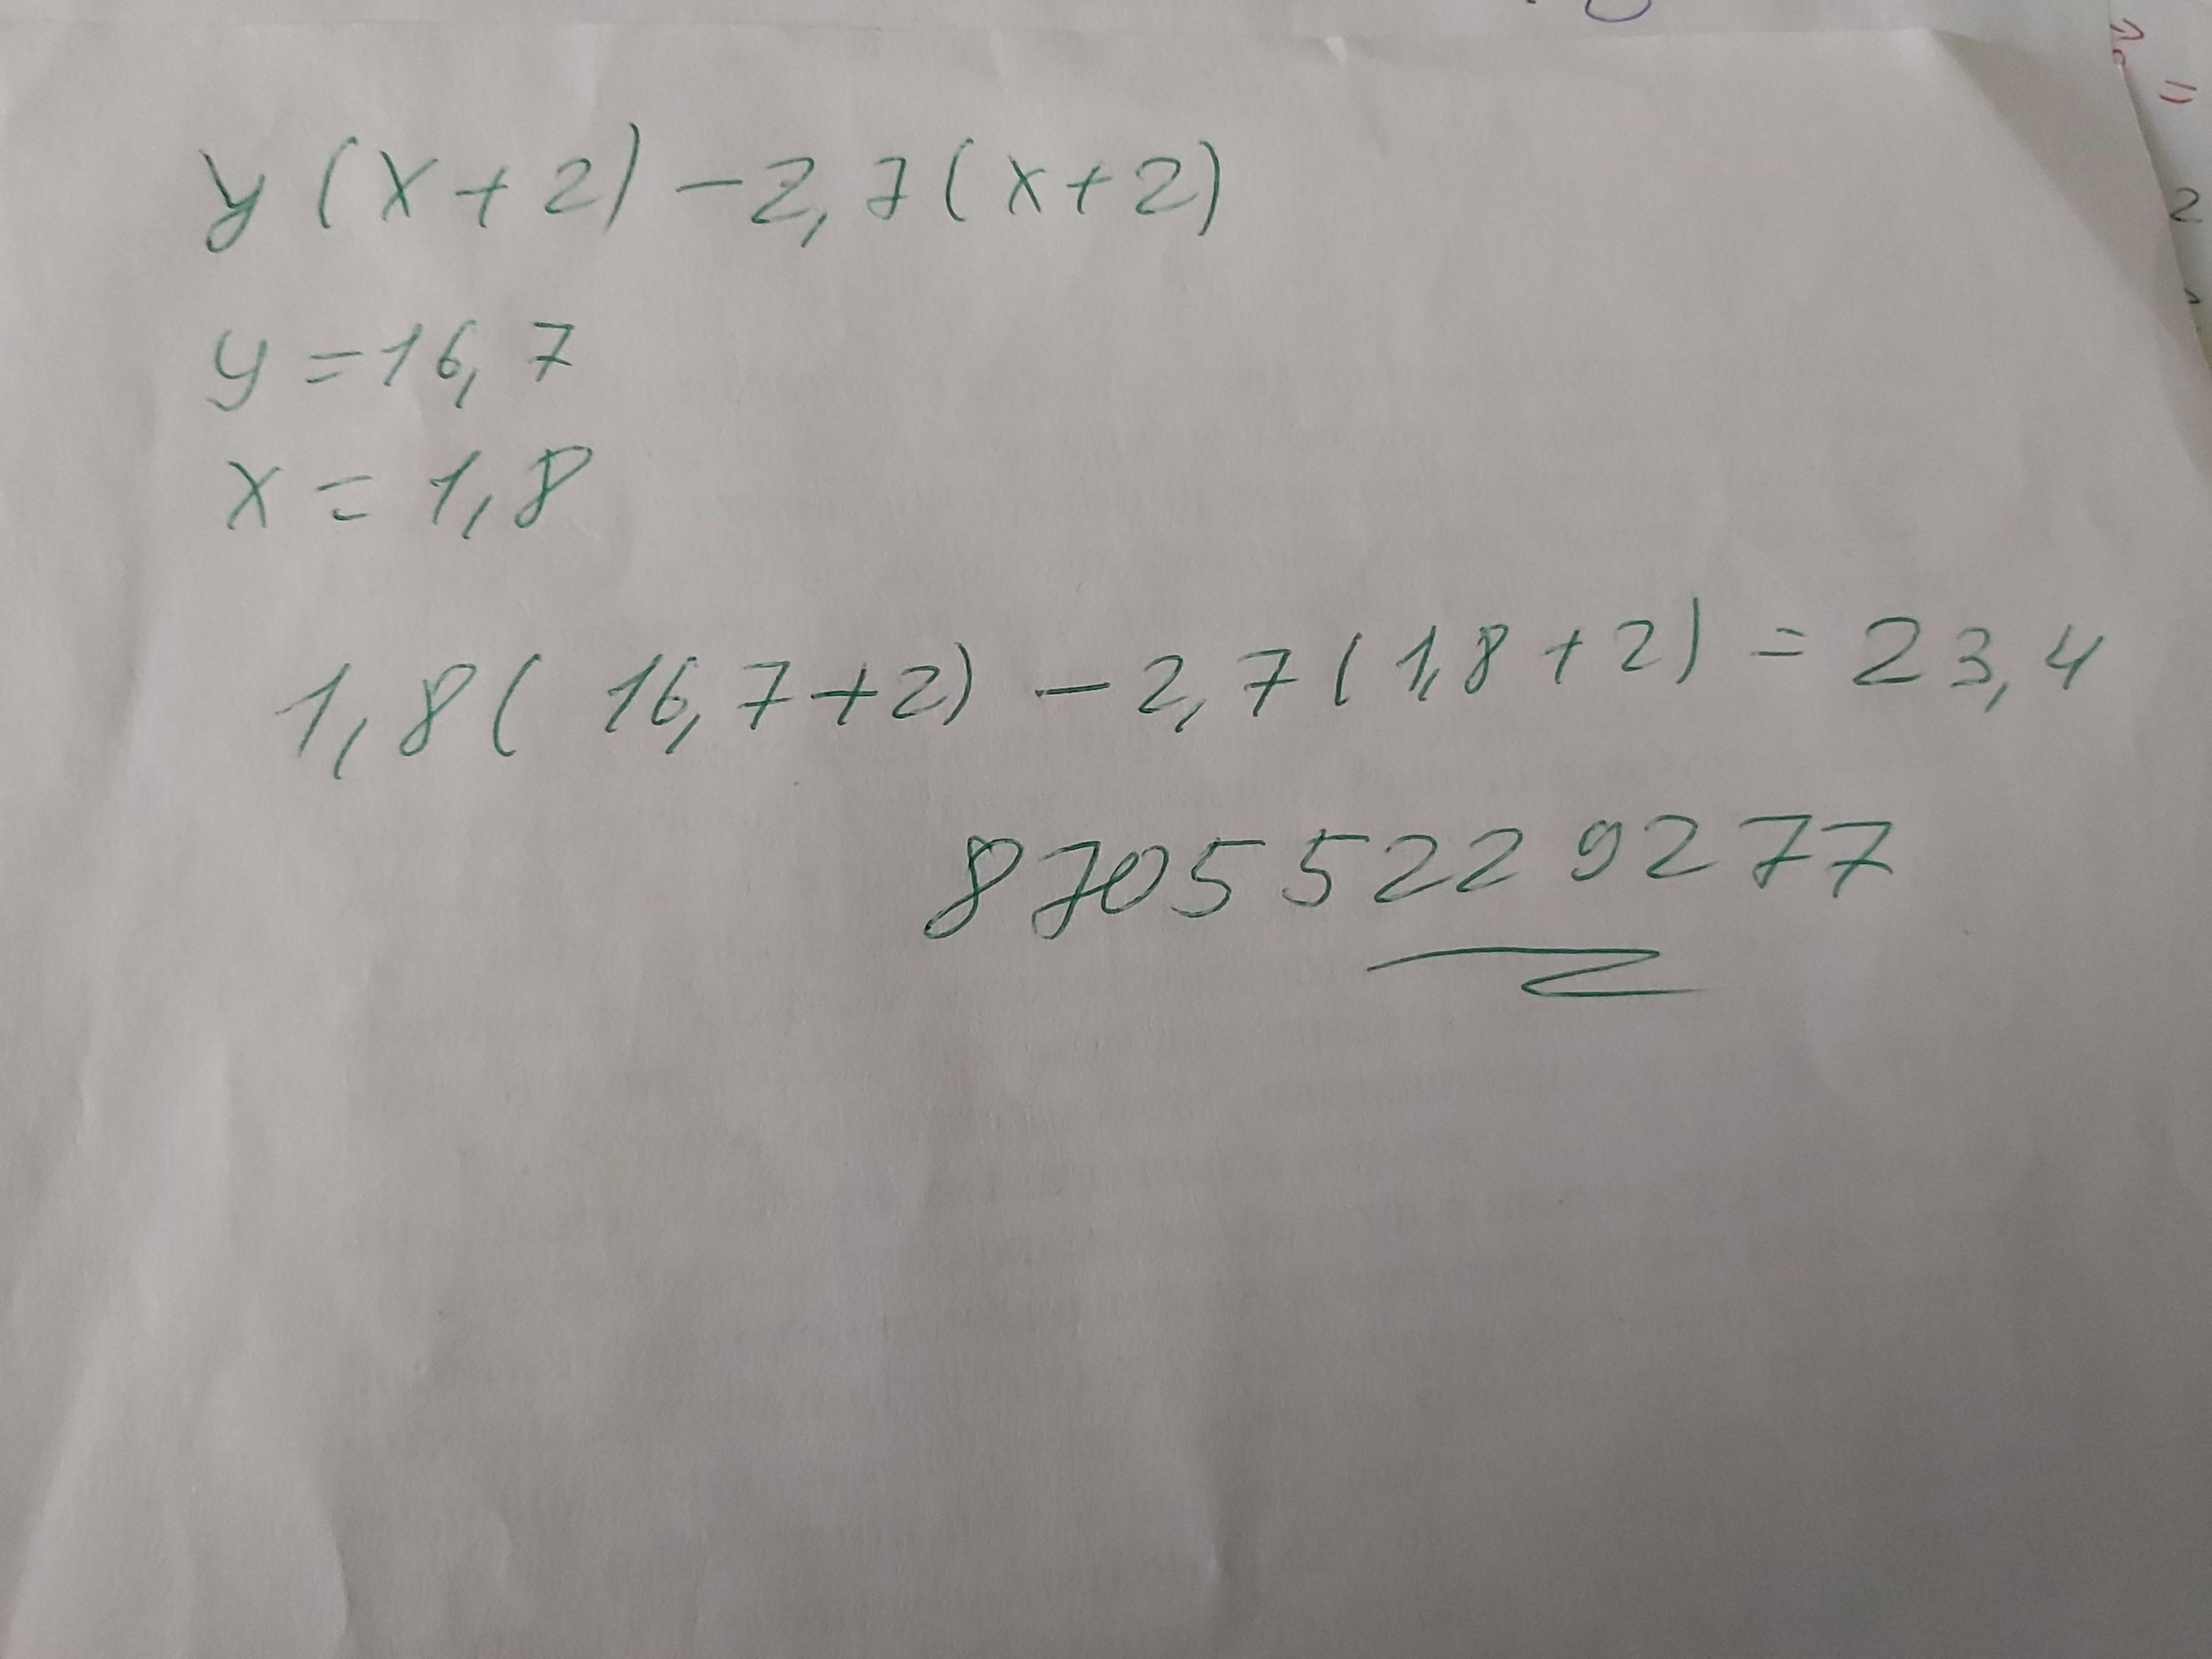 y(x+2)-2,7(x+2)
y=16,7
x=1,8
1,8(16,7+2)-2,7(1,8+2)=23,4
8705 522 9277
=
2